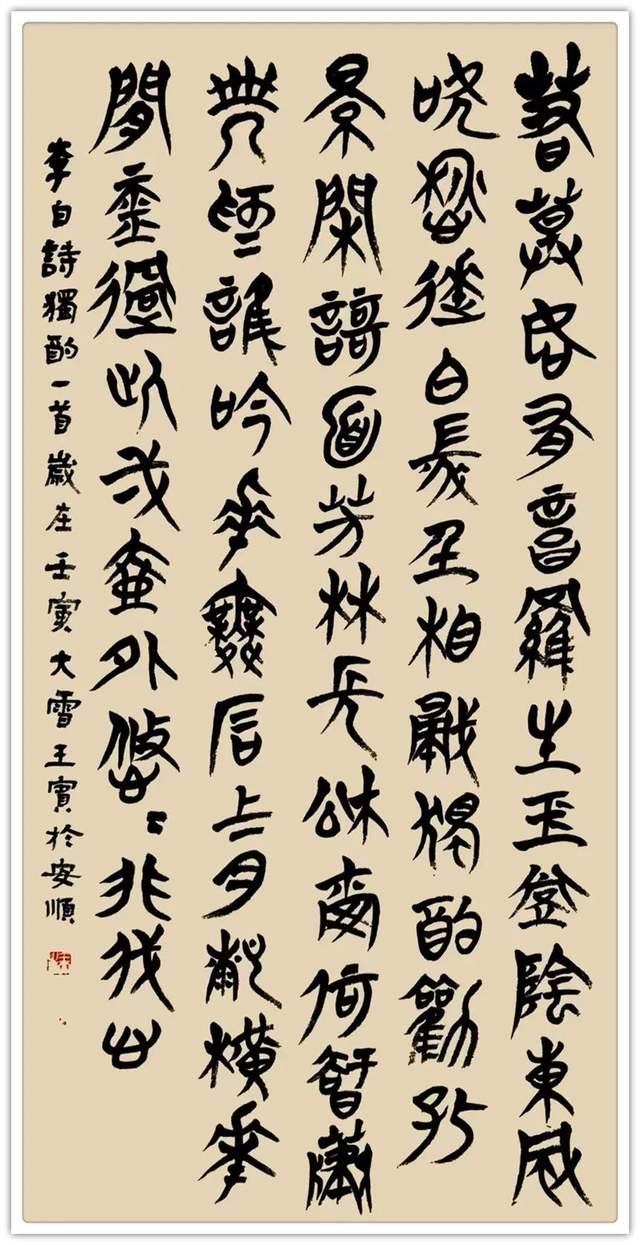 春草如有意羅生玉堂陰東風
吹愁來白髮坐相侵獨酌勸孤
景閑謌面芳林長松爾何智蕭
瑟為誰吟手舞石上月膝橫花
間琴過此弌壺外悠悠非我心
李白詩獨酌一首歲在壬寅大雪王實於安順